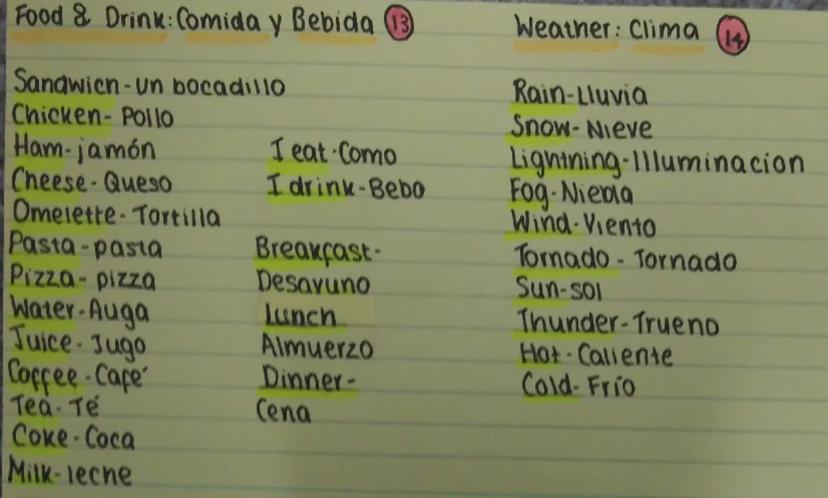 Food & Drink: Comida y Bebida 13
Sandwich - un bocadillo
Chicken - Pollo
Ham - jamón
Cheese - Queso
Omelette - Tortilla
Pasta - pasta
Pizza - pizza
Water - Auga
Juice - Jugo
Coffee - Café
Tea - Té
Coke - Coca
Milk - leche
I eat - Como
I drink - Bebo
Breakfast -
Desayuno
Lunch
Almuerzo
Dinner -
Cena
Weather: Clima 14
Rain - Lluvia
Snow - Nieve
Lightning - Illuminacion
Fog - Niebla
Wind - Viento
Tornado - Tornado
Sun - sol
Thunder - Trueno
Hot - Caliente
Cold - Frío